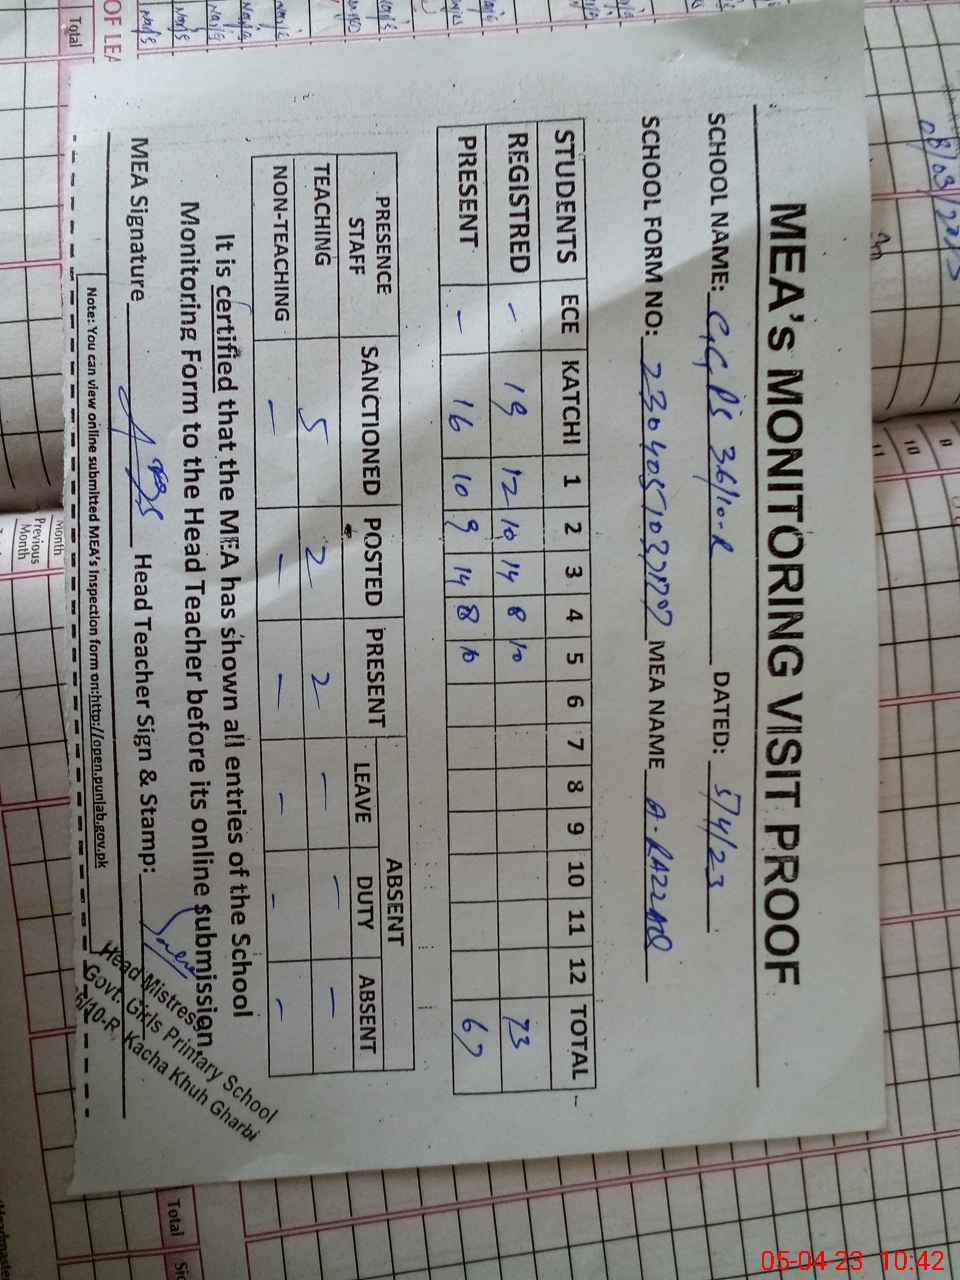 MEA's MONITORING VISIT PROOF
SCHOOL NAME: G,G,P'S 36/10-R DATED: 5/4/23
SCHOOL FORM NO: MEA NAME A. RAZZAQ
STUDENTS ECE KATCHI 1 2 3 4 5 6 7 8 9 10 11 12 TOTAL
REGISTRED - 19 12 10 14 8 10 73
PRESENT - 16 10 9 14 8 10 67
PRESENCE STAFF SANCTIONED POSTED PRESENT ABSENT
LEAVE DUTY ABSENT
TEACHING 5 2 2 - - -
NON-TEACHING - - - - - -
It is certified that the MEA has shown all entries of the School
Monitoring Form to the Head Teacher before its online submission
MEA Signature Head Teacher Sign & Stamp:
Head Mistress
Govt. Girls Primary School
36/10-R Kacha Khuh Gharbi
Note: You can view online submitted MEA's inspection form on:http://open.punlab.gov.pk
08/03/2023
OF LEA
Total
9
10
11
Month
Previous
Month
Total
05-04-23 10:42